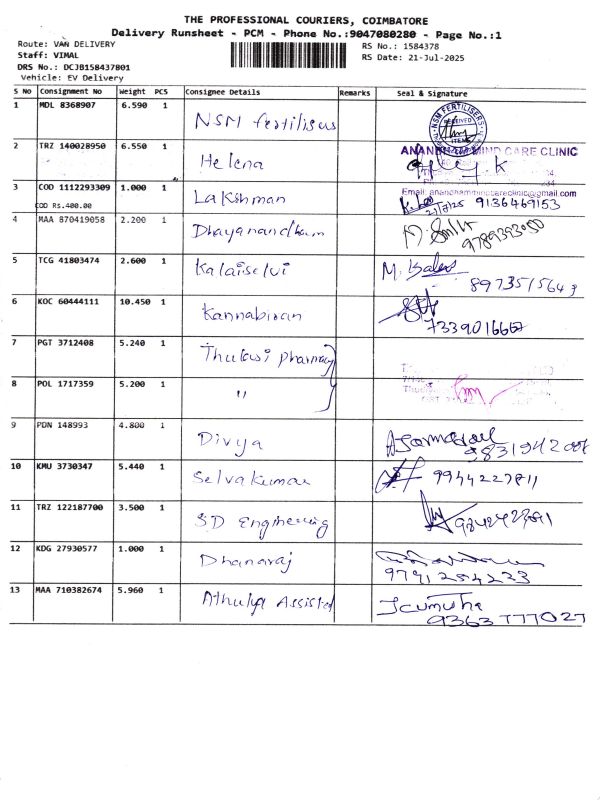 THE PROFESSIONAL COURIERS, COIMBATORE
Delivery Runsheet - PCM - Phone No.:9047080280 - Page No.:1
Route: VAN DELIVERY
Staff: VIMAL
DRS No.: DCJB158437801
Vehicle: EV Delivery
RS No.: 1584378
RS Date: 21-Jul-2025
S No Consignment No Weight PCS Consignee Details Remarks Seal & Signature
1 MDL 8368907 6.590 1 NSM fertilisers NSM FERTILISERS RECEIVED ITEMS
2 TRZ 140028950 6.550 1 Helena MIND CARE CLINIC
3 COD 1112293309 1.000 1 Lakshman 9136469153
COD RS.400.00
4 MAA 870419058 2.200 1 Dhayanandham
5 TCG 41803474 2.600 1 Kalaiselvi M. 8973515643
6 KOC 60444111 10.450 1 Kannabiran 7339016667
7 PGT 3712408 5.240 1 pharmacy
8 POL 1717359 5.200 1 "
9 PDN 148993 4.800 1 Divya
10 KMU 3730347 5.440 1 Selvakumar 9944227811
11 TRZ 122187700 3.500 1 SD Engineering
12 KDG 27930577 1.000 1 Dhanaraj 9791284233
13 MAA 710382674 5.960 1 Athulya Assisted 9363777027